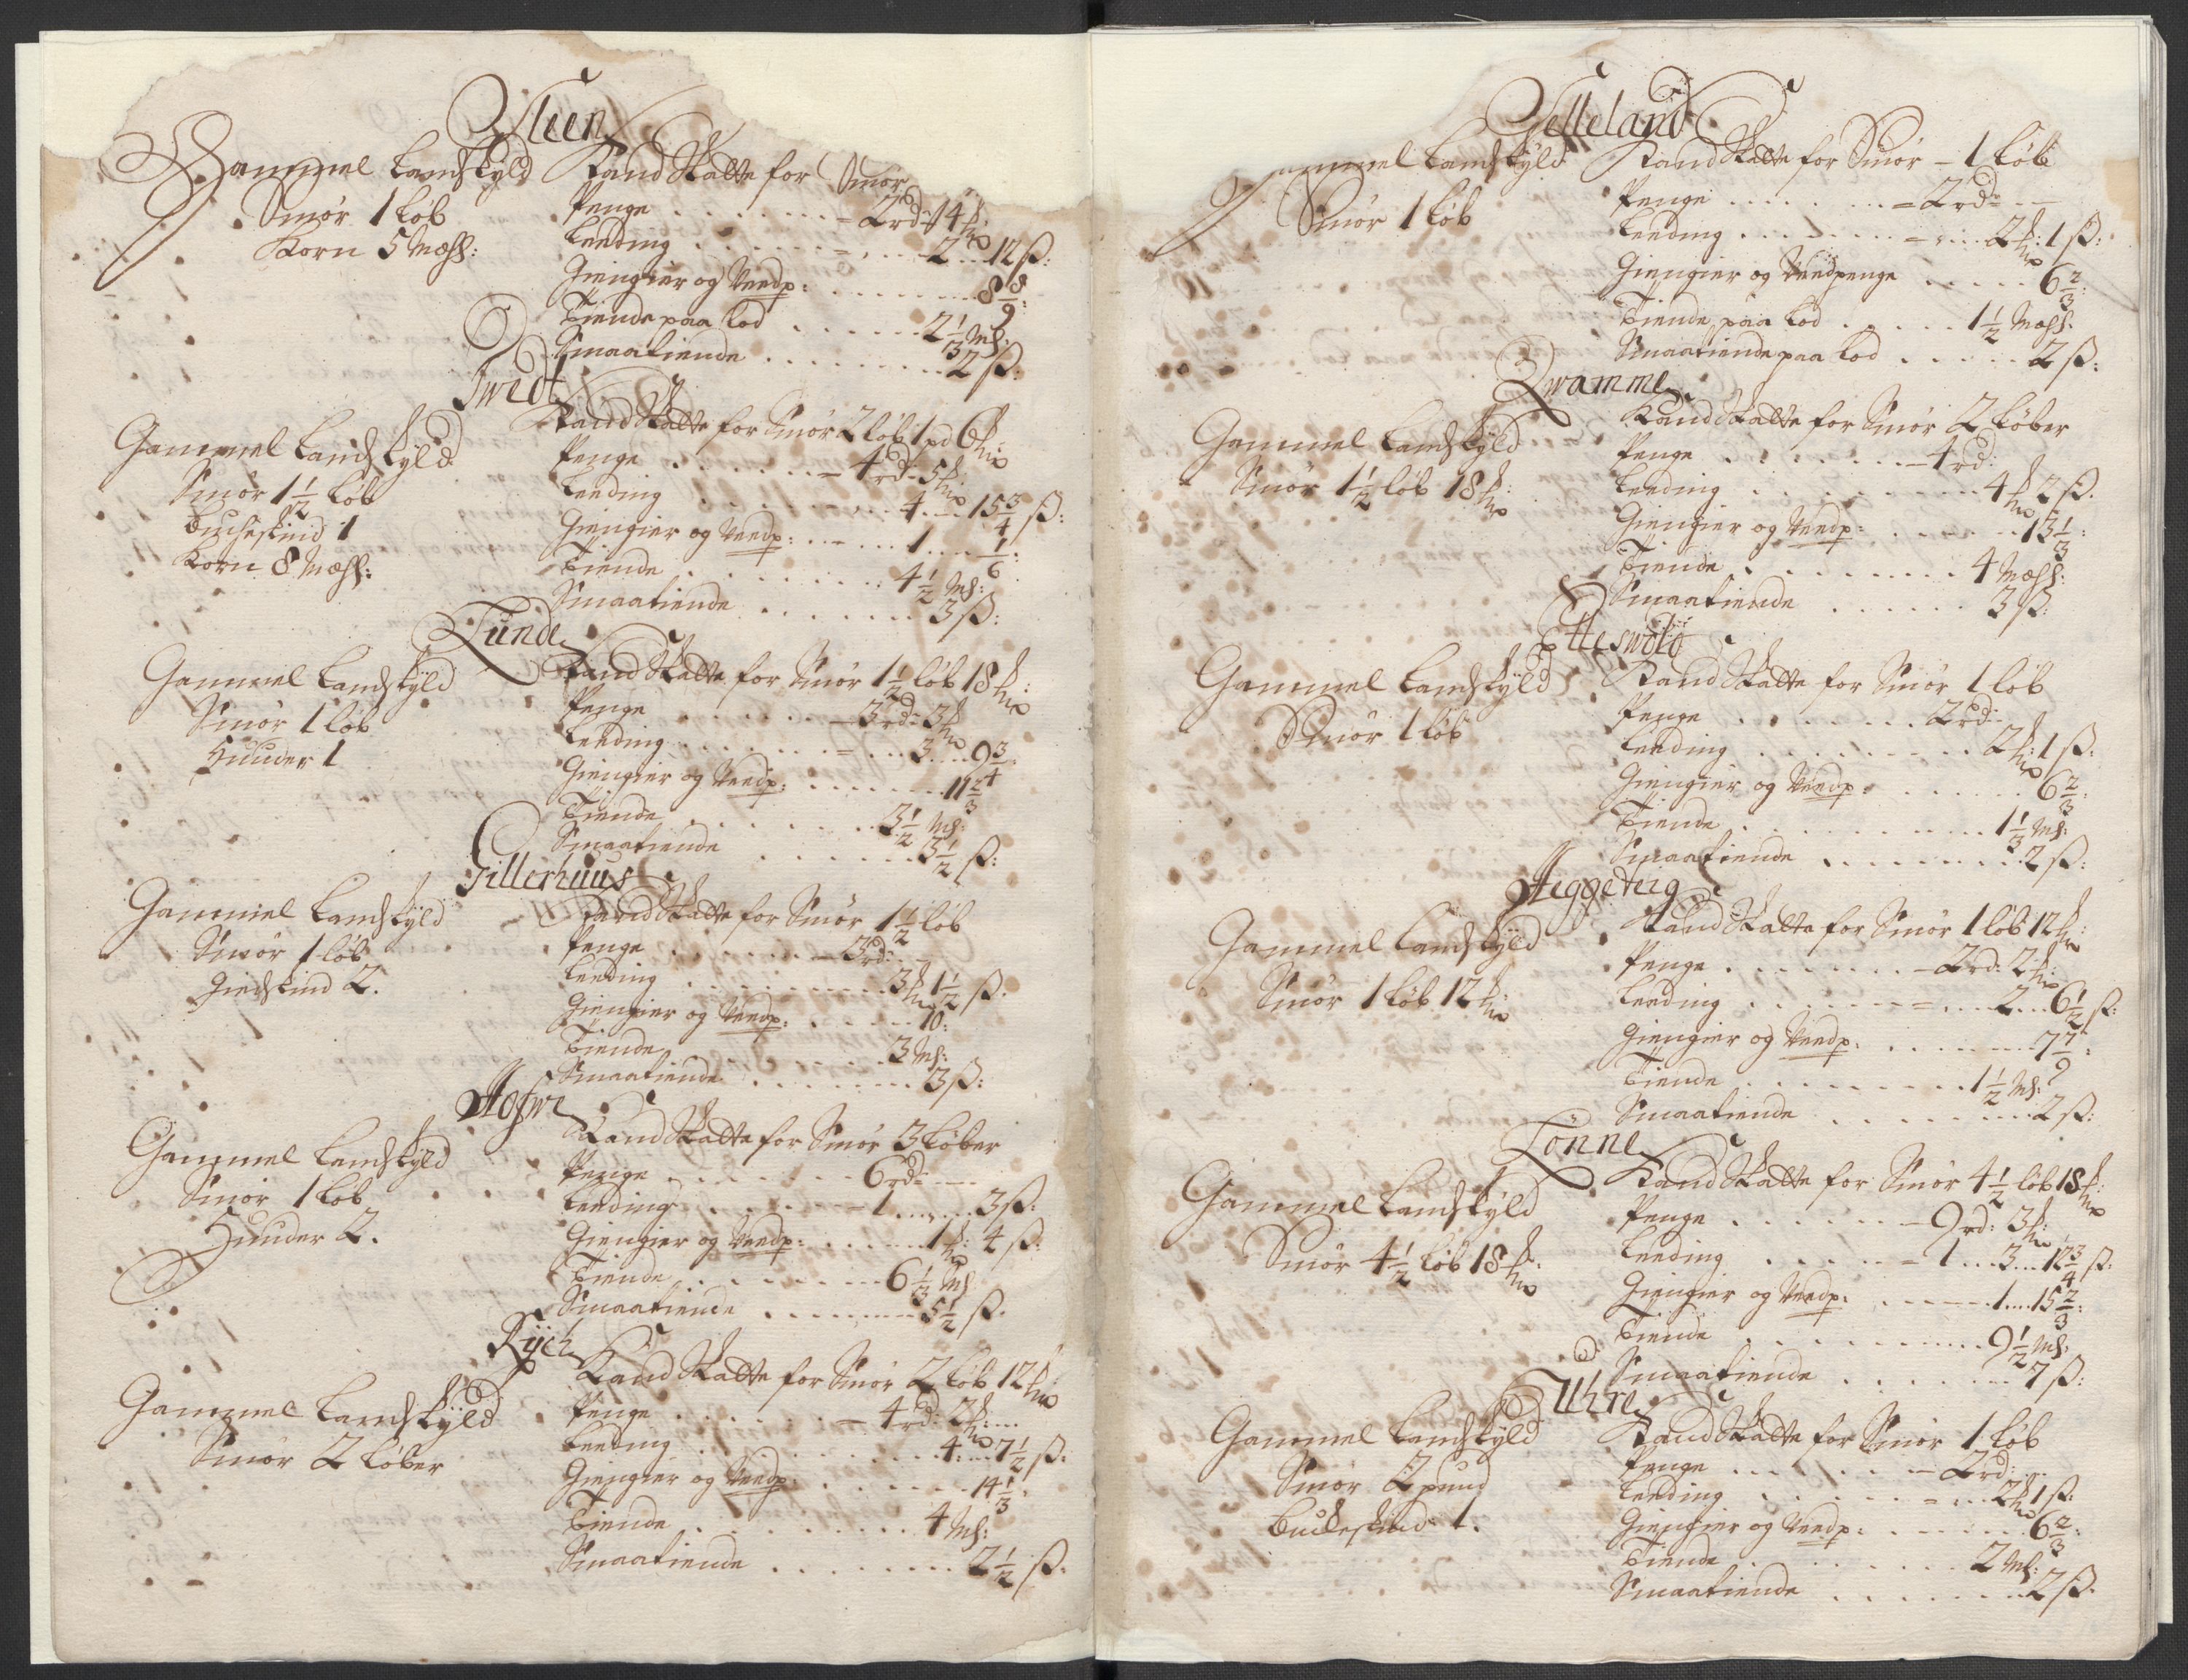 Steen
Gammel Landskyld
Smör 1 Löb
Korn 5 Mæhl:
Kand Skatte for Smör
Penge - 2 rd: 4 mk:
Leeding = 2 12 ß:
Giengier og Weedp: 8 8/9:
Tiende paa Lod 2 1/3 Ml:
Smaatiende 2 ß:
Twedt
Gammel Landskyld
Smör 1 1/2 Löb
Buckeskind 1
Korn 8 Mæhl:
Kand Skatte for Smör 2 Löb 1 pd 6 mk:
Penge - 4 rd: 5 mk
Leeding 4 15 3/4 ß:
Giengier og Weedp: 1 1/6:
Tiende 4 1/2 Ml:
Smaatiende 3 ß:
Lunde
Gammel Landskyld
Smör 1 Löb
Huuder 1
Kand Skatte for Smör 1 1/2 Löb 18 mk:
Penge - 3 rd: 3 mk
Leeding = 3 9 3/4
Giengier og Weedp: 11 2/3
Tiende 3 1/2 Ml:
Smaatiende 3 1/2 ß:
Gillerhuus
Gammel Landskyld
Smör 1 Löb
Giedskind 2.
Kand Skatte for Smör 1 1/2 Löb
Penge - 3 rd:
Leeding 3 mk 1 1/2 ß.
Giengier og Weedp: 10:
Tiende 3 Ml:
Smaatiende 3 ß:
Hofwe
Gammel Landskyld
Smör 1 Löb
Huuder 2.
Kand Skatte for Smör 3 Löber
Penge 6 rd:
Leeding - 1 3 ß:
Giengier og Weedp: 1 mk: 4 ß:
Tiende 6 1/3 Ml
Smaatiende 5 1/2 ß.
Rych
Gammel Landskyld
Smör 2 Löber
Kand Skatte for Smör 2 Löb 12 mk
Penge - 4 rd: 2 mk:
Leeding 4 7 1/2 ß:
Giengier og Weedp: 14 1/3:
Tiende 4 Ml:
Smaatiende 2 1/2 ß.
Selleland
Gammel Landskyld
Smör 1 Löb
Kand Skatte for Smör - 1 Löb
Penge = 2 rd:
Leeding = 2 mk: 1 ß:
Giengier og Weedpenge 6 2/3:
Tiende paa Lod 1 1/2 Mæhl:
Smaatiende paa Lod 2 ß:
Qwamme
Gammel Landskyld
Smör 1 1/2 Löb 18 mk:
Kand Skatte for Smör 2 Löber
Penge - 4 rd:
Leeding 4 mk 2 ß.
Giengier og Weedp: 13 1/3:
Tiende 4 Mæhl:
Smaatiende 3 ß:
Etteswold
Gammel Landskyld
Smör 1 Löb
Kand Skatte for Smör 1 Löb
Penge 2 rd:
Leeding 2 mk: 1 ß:
Giengier og Weedp: 6 2/3:
Tiende 1 1/3 Ml:
Smaatiende 2 ß:
Heggeteig
Gammel Landskyld
Smör 1 Löb 12 mk:
Kand Skatte for Smör 1 Löb 12 mk:
Penge - 2 rd: 2 mk:
Leeding = 2 6 1/2 ß:
Giengier og Weedp: 7 7/9:
Tiende 1 1/2 Ml:
Smaatiende 2 ß:
Tönne
Gammel Landskyld
Smör 4 1/2 Löb 18 mk:
Kand Skatte for Smör 4 1/2 Löb 18 mk:
Penge - 9 rd: 3 mk:
Leeding = 1 3 12 3/4 ß:
Giengier og Weedp: 1 15 2/3:
Tiende 9 1/2 Ml:
Smaatiende 7 ß:
Uhre
Gammel Landskyld
Smör 2 pund
Buckeskind 1.
Kand Skatte for Smör 1 Löb
Penge - 2 rd:
Leeding = 2 mk 1 ß:
Giengier og Weedp: 6 2/3:
Tiende 2 Ml:
Smaatiende 2 ß.